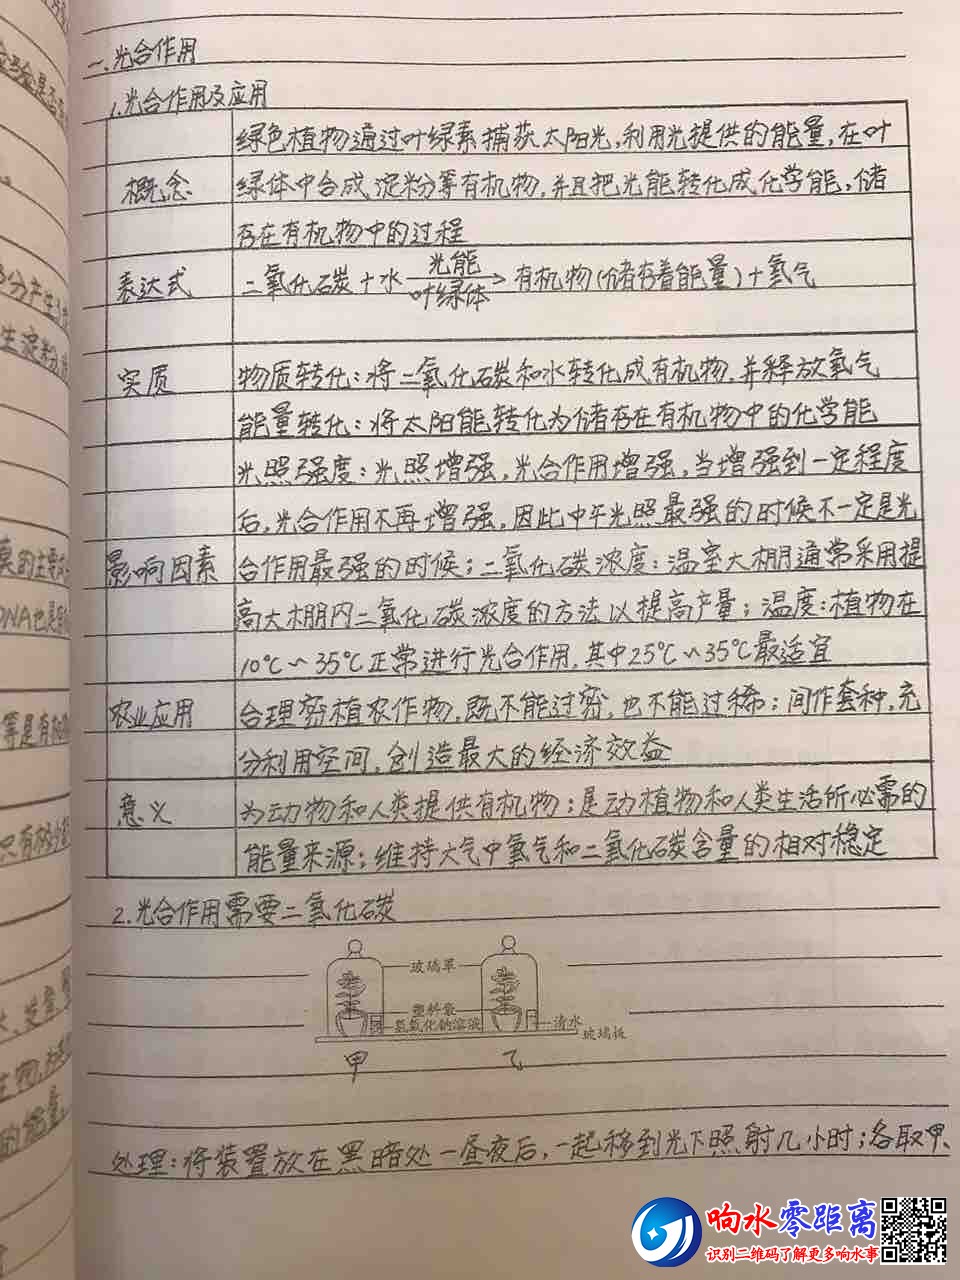 一.光合作用
1.光合作用及应用
绿色植物通过叶绿素捕获太阳光,利用光提供的能量,在叶
概念 绿体中合成淀粉等有机物,并且把光能转化成化学能,储
存在有机物中的过程
表达式 二氧化碳+水 光能 叶绿体 有机物(储存着能量)+氧气
实质 物质转化:将二氧化碳和水转化成有机物,并释放氧气
能量转化:将太阳能转化为储存在有机物中的化学能
光照强度:光照增强,光合作用增强,当增强到一定程度
后,光合作用不再增强,因此中午光照最强的时候不一定是光
影响因素 合作用最强的时候;二氧化碳浓度:温室大棚通常采用提
高大棚内二氧化碳浓度的方法以提高产量;温度:植物在
10℃~35℃正常进行光合作用,其中25℃~35℃最适宜
农业应用 合理密植农作物,既不能过密,也不能过稀;间作套种,充
分利用空间,创造最大的经济效益
意义 为动物和人类提供有机物;是动植物和人类生活所必需的
能量来源;维持大气中氧气和二氧化碳含量的相对稳定
2.光合作用需要二氧化碳
玻璃罩
塑料袋
氢氧化钠溶液
清水
玻璃板
甲 乙
处理:将装置放在黑暗处一昼夜后,一起移到光下照射几小时;各取甲、
响水零距离
识别二维码了解更多响水事